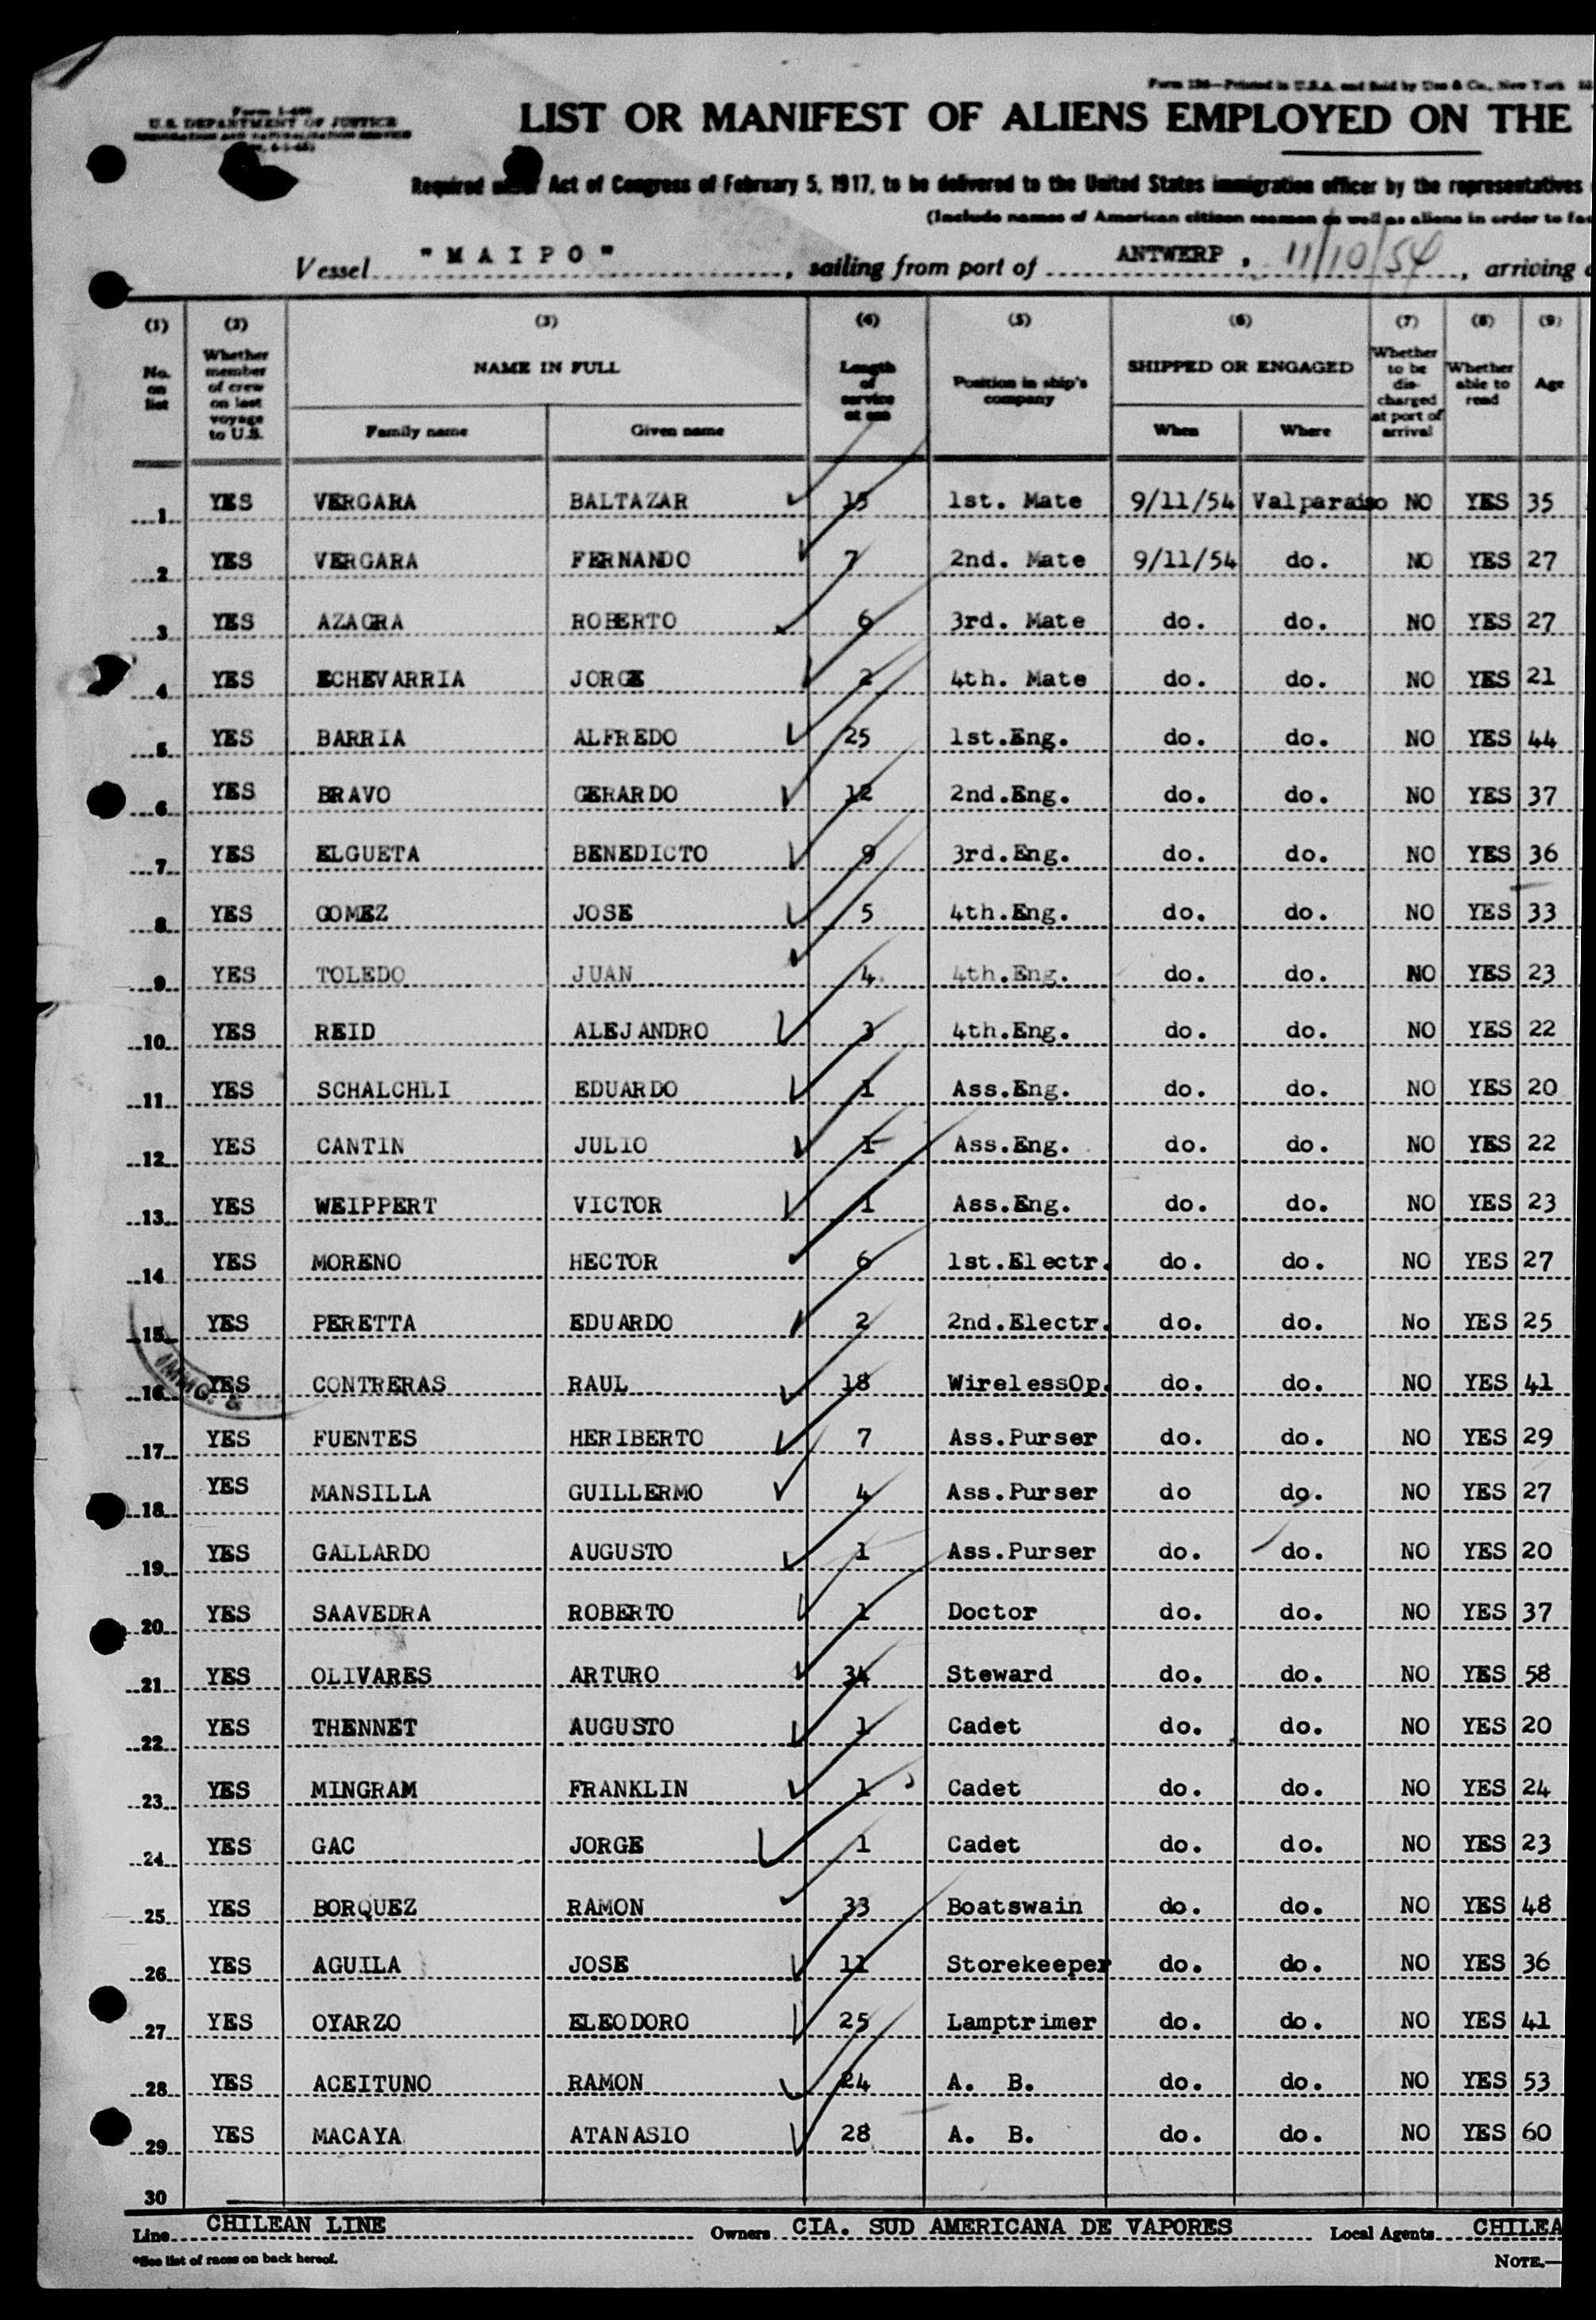 Form 136—Printed in U.S.A. and Sold by Unz & Co., New York
Form I-480
U.S. DEPARTMENT OF JUSTICE
IMMIGRATION AND NATURALIZATION SERVICE
LIST OR MANIFEST OF ALIENS EMPLOYED ON THE
Required under Act of Congress of February 5, 1917, to be delivered to the United States immigration officer by the representatives
(Include names of American citizen seamen as well as aliens in order to fac
Vessel "MAIPO", sailing from port of ANTWERP, 11/10/54, arriving
(1) (2) (3) (4) (5) (6) (7) (8) (9)
No. on list Whether member of crew on last voyage to U.S. NAME IN FULL Length of service at sea Position in ship's company SHIPPED OR ENGAGED Whether to be discharged at port of arrival Whether able to read Age
Family name Given name When Where
1 YES VERGARA BALTAZAR 15 1st. Mate 9/11/54 Valparaiso NO YES 35
2 YES VERGARA FERNANDO 7 2nd. Mate 9/11/54 do. NO YES 27
3 YES AZAGRA ROBERTO 6 3rd. Mate do. do. NO YES 27
4 YES ECHEVARRIA JORGE 2 4th. Mate do. do. NO YES 21
5 YES BARRIA ALFREDO 25 1st.Eng. do. do. NO YES 44
6 YES BRAVO GERARDO 12 2nd.Eng. do. do. NO YES 37
7 YES ELGUETA BENEDICTO 9 3rd.Eng. do. do. NO YES 36
8 YES GOMEZ JOSE 5 4th.Eng. do. do. NO YES 33
9 YES TOLEDO JUAN 4 4th.Eng. do. do. NO YES 23
10 YES REID ALEJANDRO 3 4th.Eng. do. do. NO YES 22
11 YES SCHALCHLI EDUARDO 1 Ass.Eng. do. do. NO YES 20
12 YES CANTIN JULIO 1 Ass.Eng. do. do. NO YES 22
13 YES WEIPPERT VICTOR 1 Ass.Eng. do. do. NO YES 23
14 YES MORENO HECTOR 6 1st.Electr. do. do. NO YES 27
15 YES PERETTA EDUARDO 2 2nd.Electr. do. do. No YES 25
16 YES CONTRERAS RAUL 18 WirelessOp. do. do. NO YES 41
17 YES FUENTES HERIBERTO 7 Ass.Purser do. do. NO YES 29
18 YES MANSILLA GUILLERMO 4 Ass.Purser do do. NO YES 27
19 YES GALLARDO AUGUSTO 1 Ass.Purser do. do. NO YES 20
20 YES SAAVEDRA ROBERTO 1 Doctor do. do. NO YES 37
21 YES OLIVARES ARTURO 34 Steward do. do. NO YES 58
22 YES THENNET AUGUSTO 1 Cadet do. do. NO YES 20
23 YES MINGRAM FRANKLIN 1 Cadet do. do. NO YES 24
24 YES GAC JORGE 1 Cadet do. do. NO YES 23
25 YES BORQUEZ RAMON 33 Boatswain do. do. NO YES 48
26 YES AGUILA JOSE 11 Storekeeper do. do. NO YES 36
27 YES OYARZO ELEODORO 25 Lamptrimer do. do. NO YES 41
28 YES ACEITUNO RAMON 24 A. B. do. do. NO YES 53
29 YES MACAYA ATANASIO 28 A. B. do. do. NO YES 60
30
Line CHILEAN LINE Owners CIA. SUD AMERICANA DE VAPORES Local Agents CHILEA
*See list of races on back hereof. NOTE.—